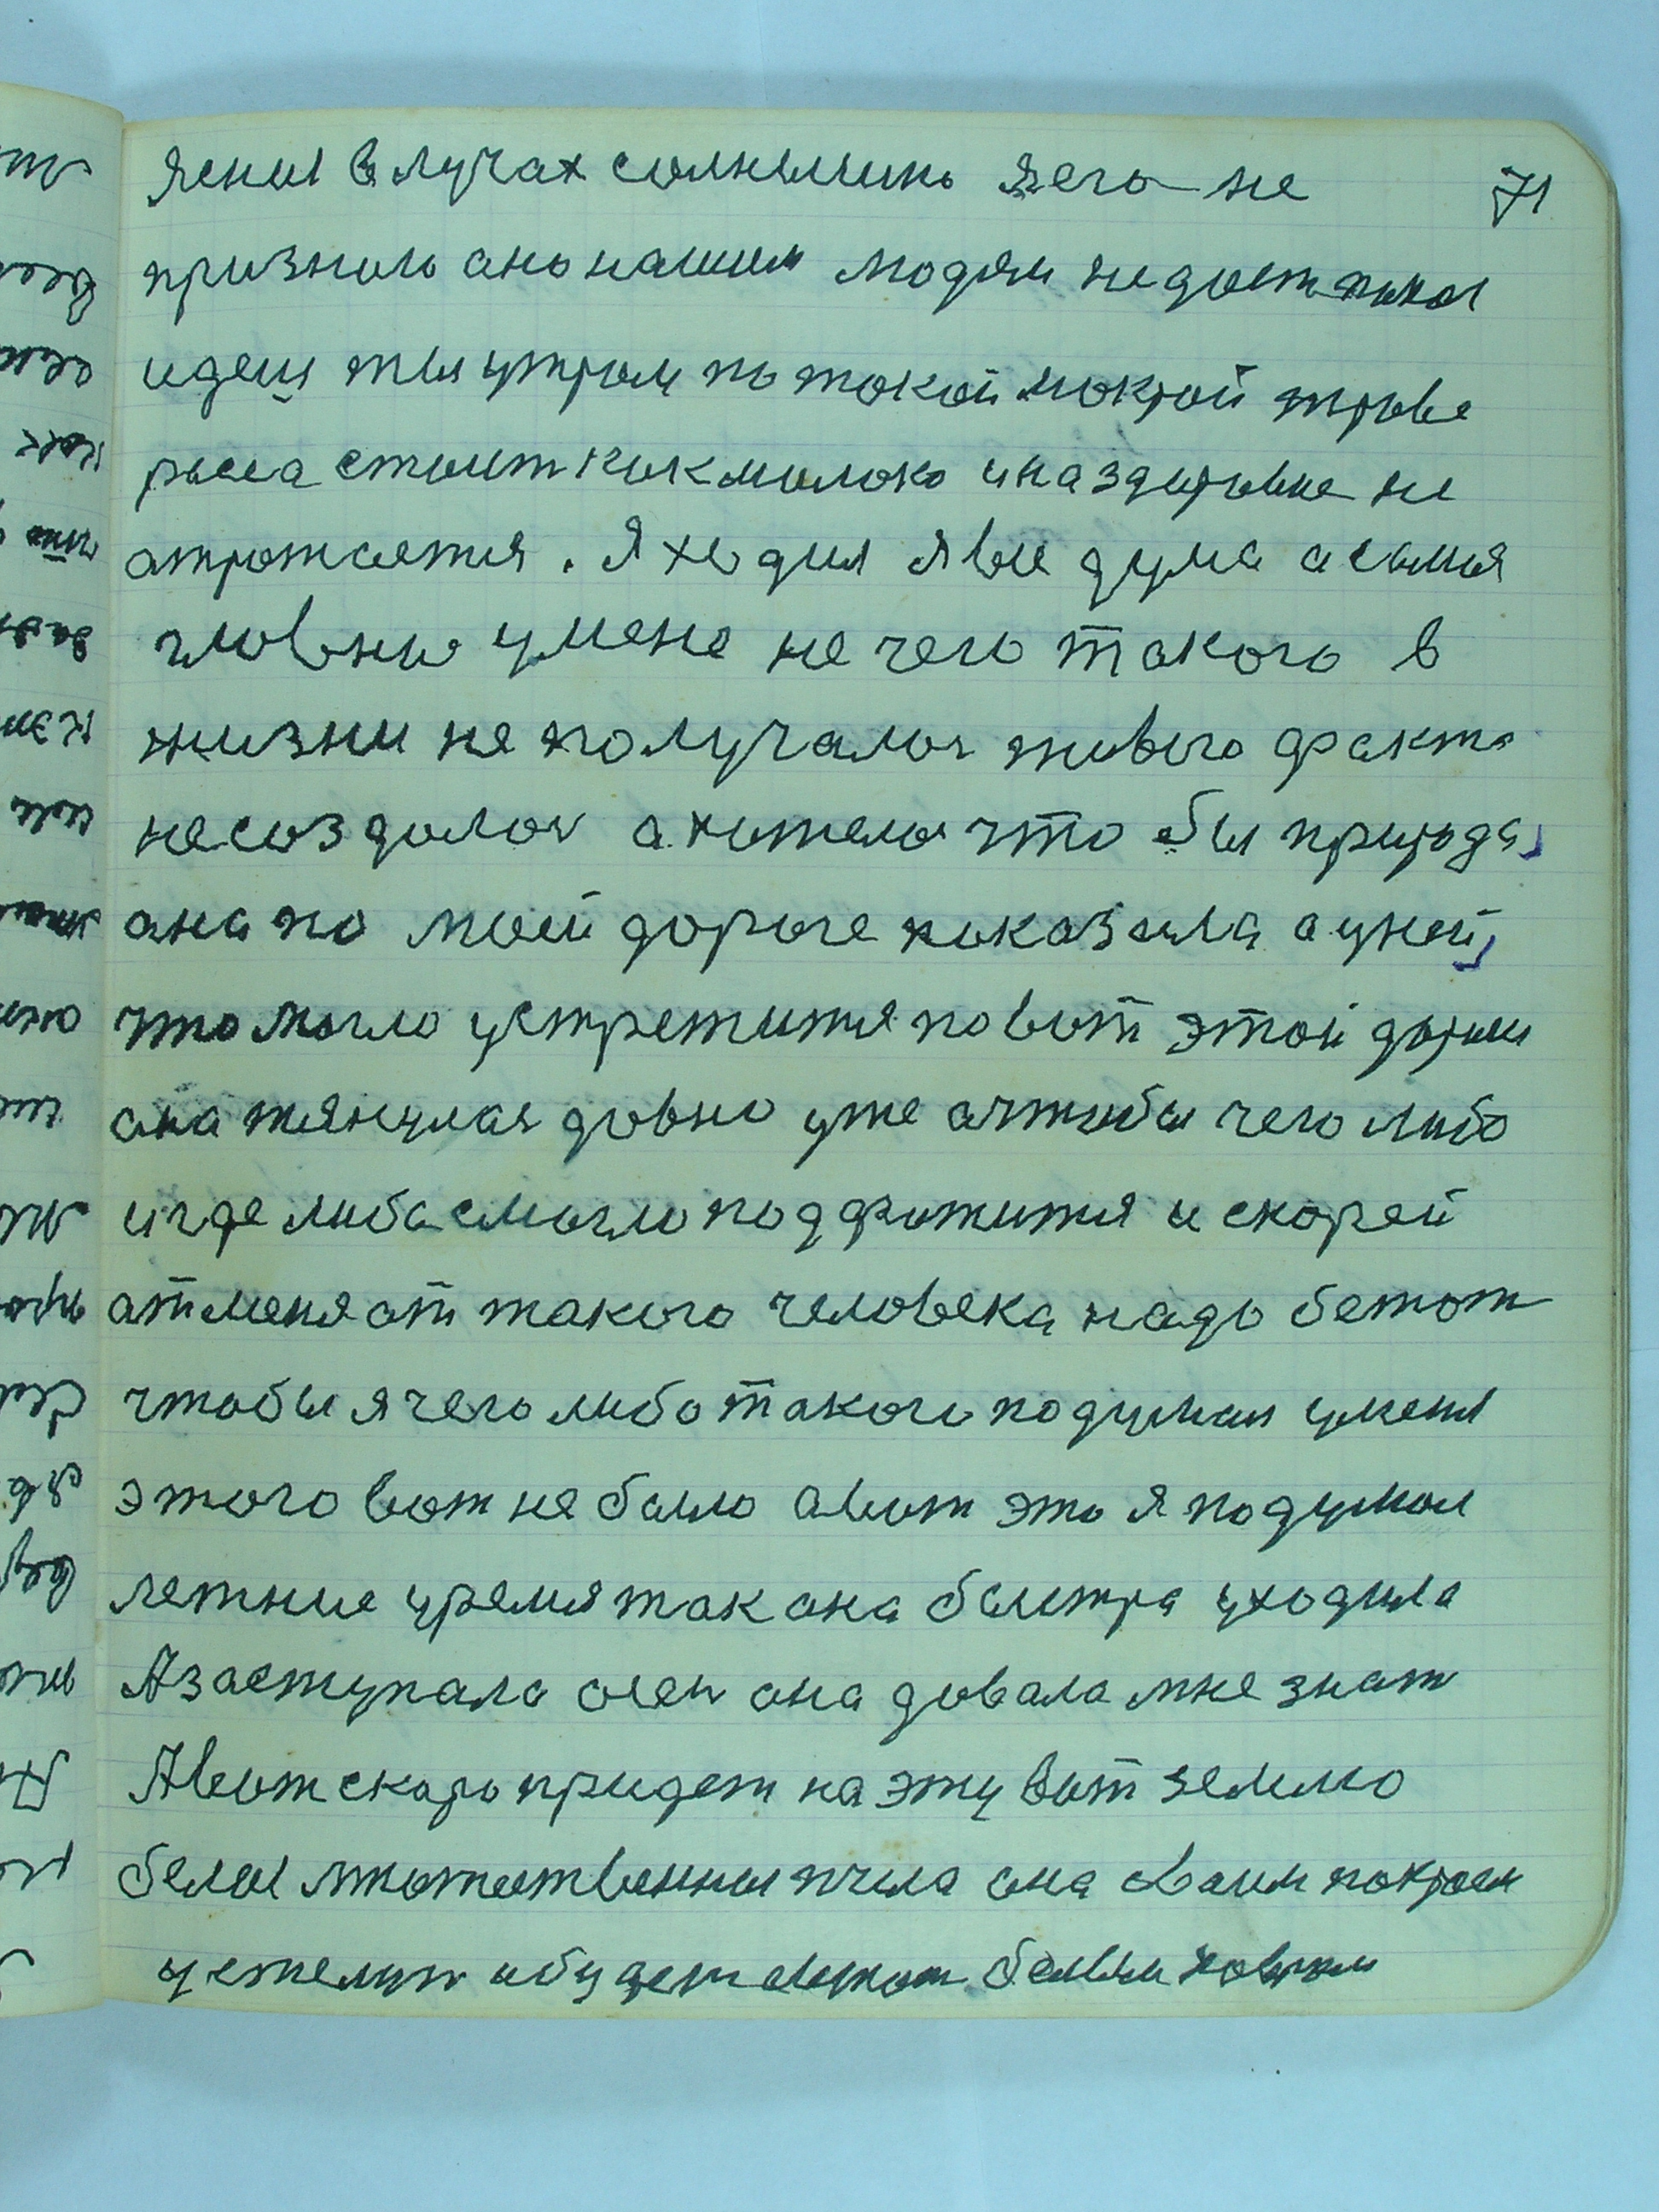 71
ясныи в лучах солнышко я его не
признаю ано нашим людям недостаткам
идеш ты утром по такой мокрой траве
роса стоит как молоко и на здаровие не
атражается. Я ходил я все дума а самыя
главние у мене не чего такого в
жизни не получалос живого факта
не создалос а хателос что бы природа,
ана по моей дороге паказала а у ней,
что магло устретится по вот этой дароги
ана тянулас давно уже а чтобы чего либо
и где либа смагло подфатится и скорей
ат меня от такого человека надо бежат
чтобы я чего либо такого подумал у меня
этого вот не было а вот это я подумал
летние уремя так ана быстра уходила
А заступала осен ана давала мне знат
А вот скоро придет на эту вот землю
белаи множественныи пчела ана сваим покроем
устелит и будет лежат белым ковром